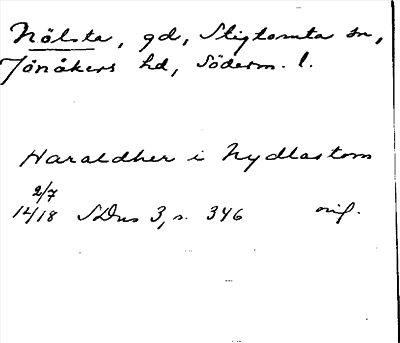 Nölsta, gd, Stigtomta sn,
Jönåkers hd, Söderm. l.
Haraldher i Nydlastom
2/7
1418 SDns 3, s. 346 orig.